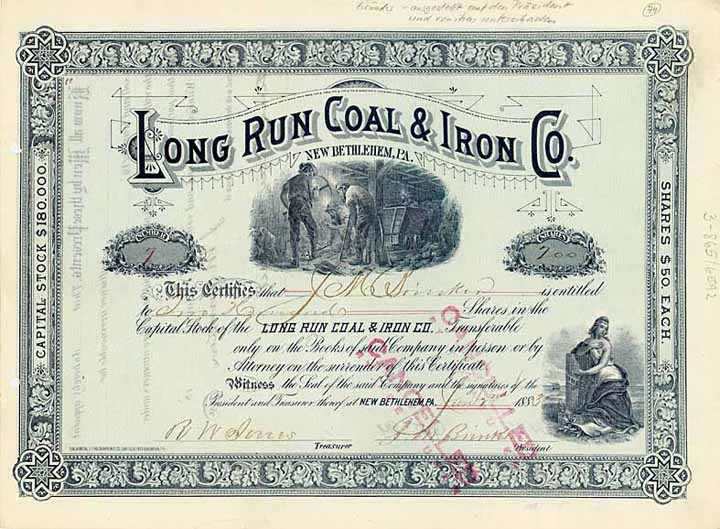 74
LONG RUN COAL & IRON CO.
NEW BETHLEHEM, PA.
NUMBER
SHARES
7
200
This Certifies that J M is entitled
to Two Hundred Shares in the
Capital Stock of the LONG RUN COAL & IRON CO. Transferable
only on the Books of said Company in person or by
Attorney on the surrender of this Certificate.
Witness the Seal of the said Company and the signatures of the
President and Treasurer thereof, at NEW BETHLEHEM, PA. 1883
R W Jones
Treasurer President
CAPITAL STOCK $180,000.
SHARES $50. EACH.
CANCELLED
CANCELLED
3-865/6592